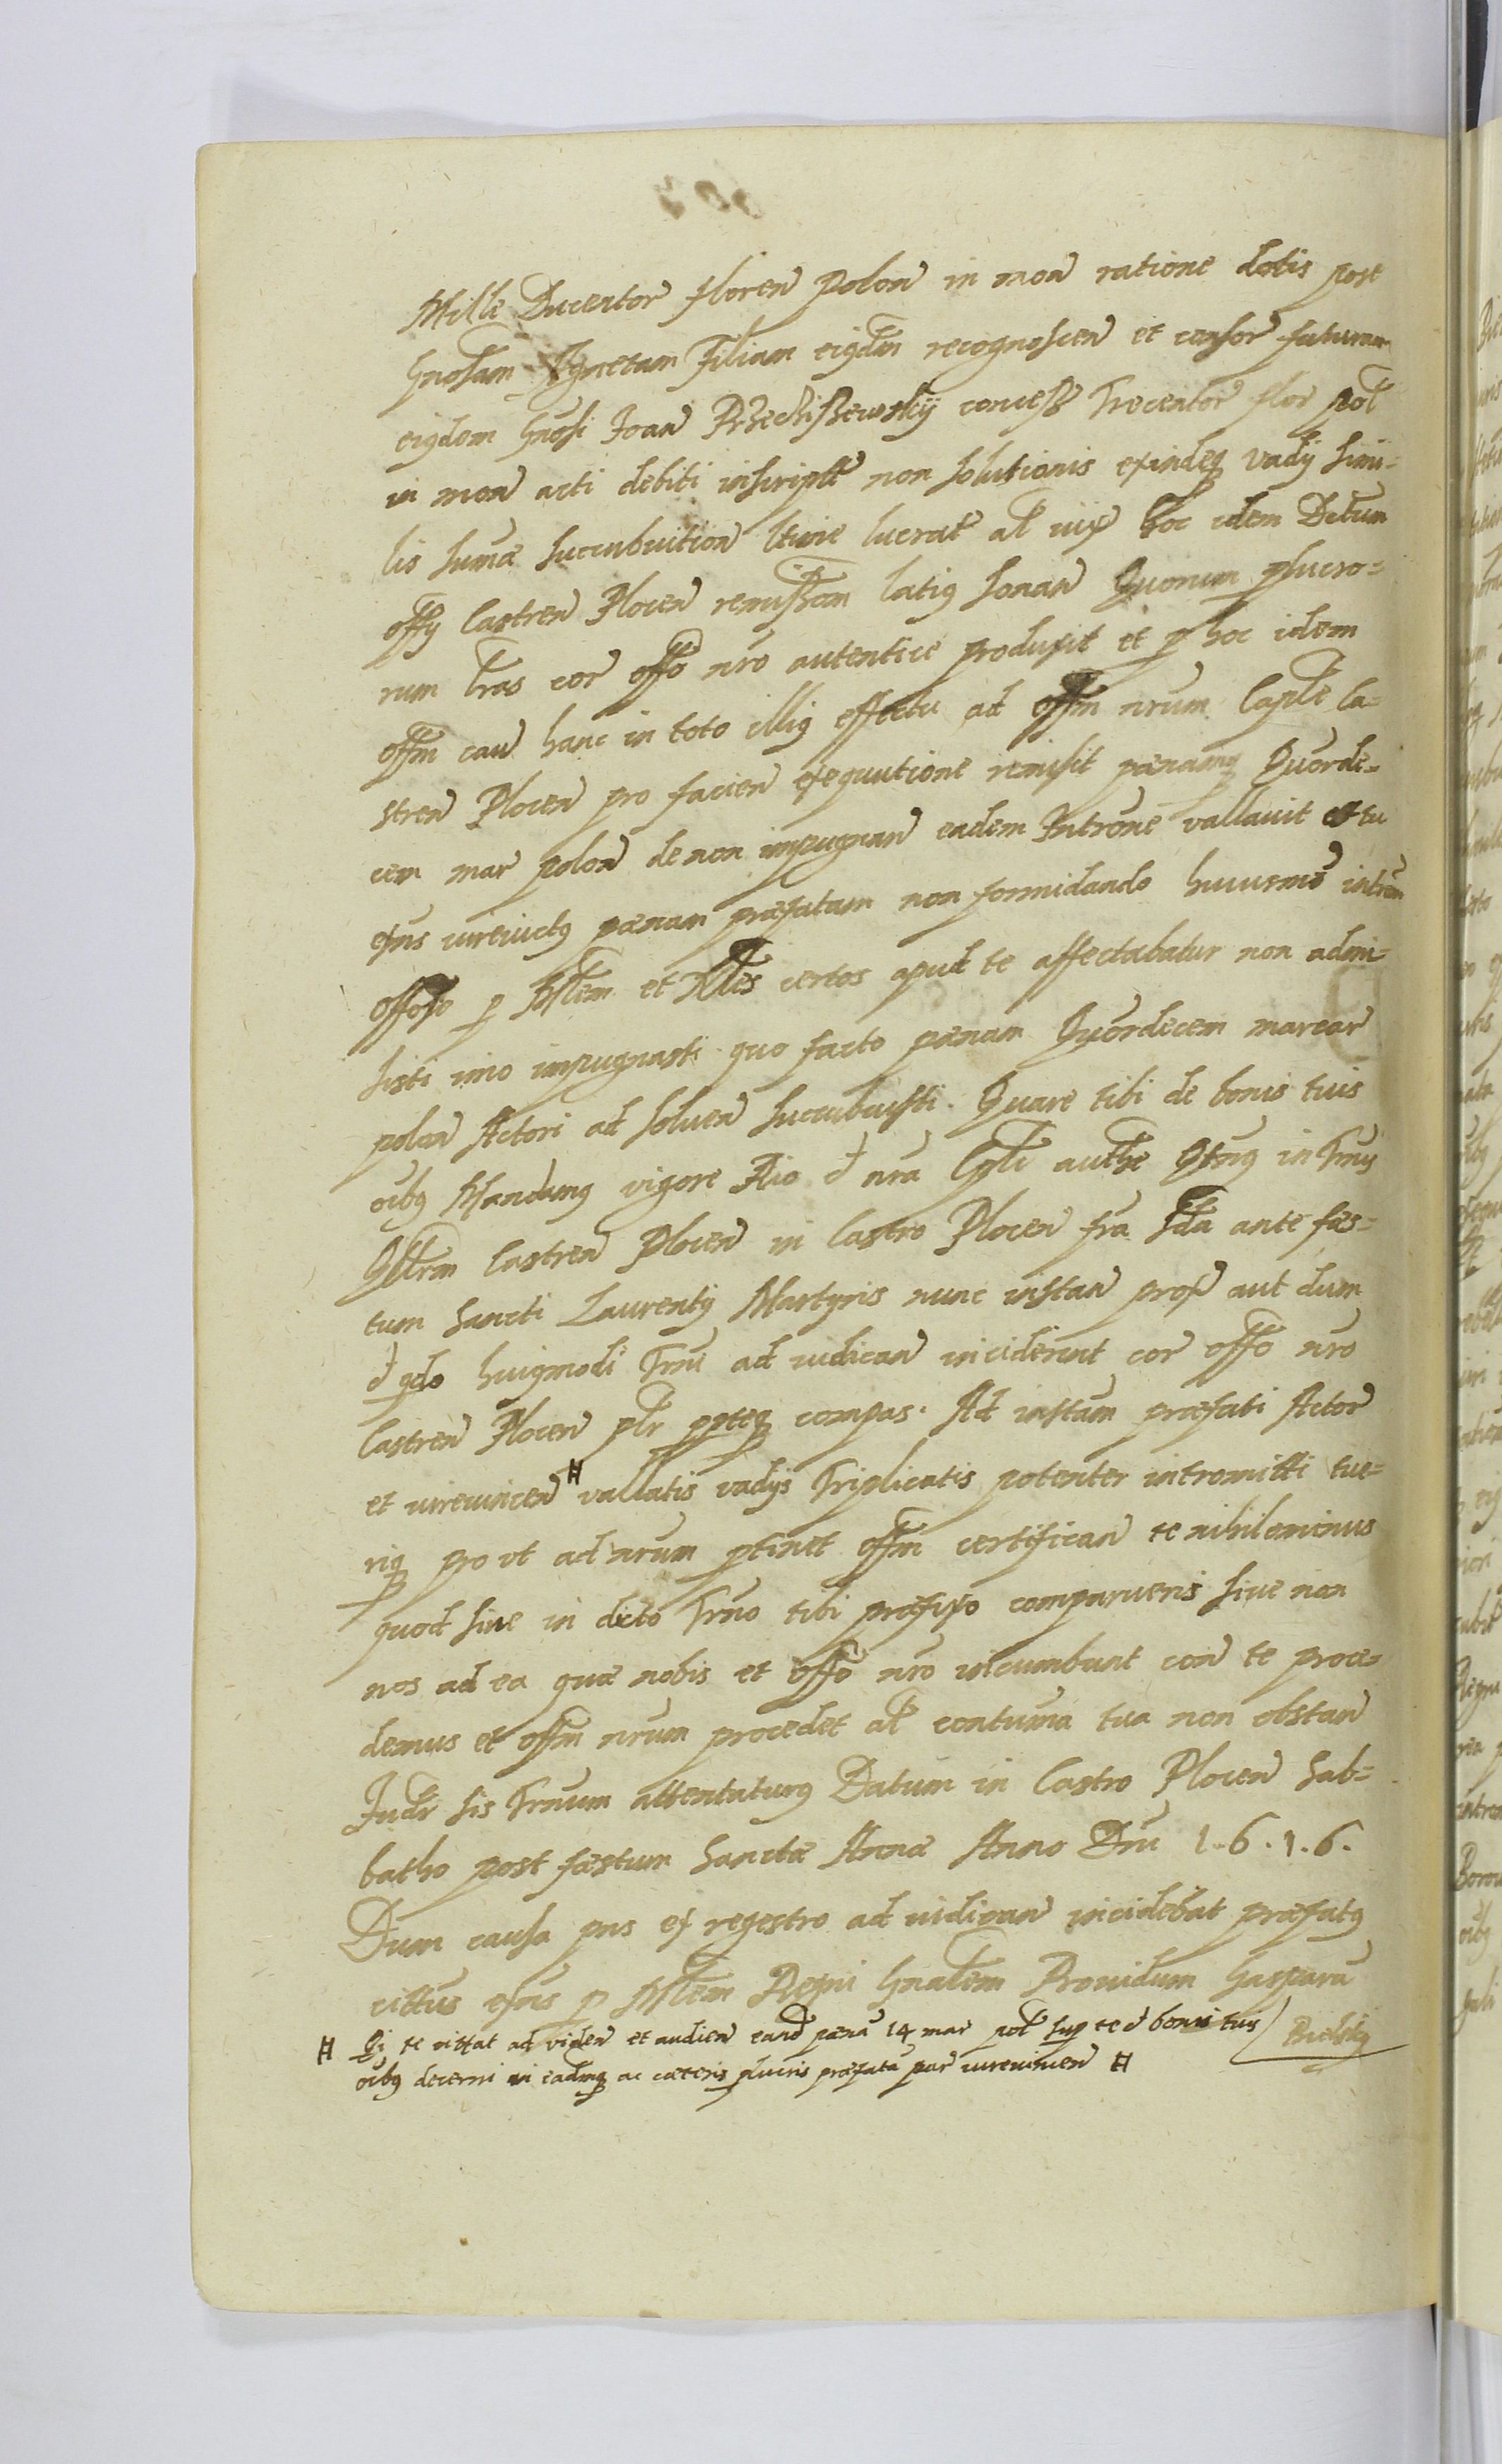 Mille Ducentor floren polon in mon ratione dotis post
Gnosam Agnetam Filiam eigdem recognoscen et consor futuram
eigdem Gnosi Joan Przecziszewskij concess Trecentor flor pol
in mon arti debiti inscript non solutionis exindeq vadij simi-
lis sumæ succubuition ltime lucrat al iux hoc idem Detum
offy Castren Plocen remissam latig sonan Quorum plucro-
rum lras cor offo nro autentice produxit et p hoc idem
offm cau hanc in toto illig effectu ad offm nrum Caple Ca-
stren Plocen pro facien exequutione remisit pænamq Quorde-
cem mar polon de non impugnan eadem Introne vallavit et tu
exns iurevictg pænam præfatam non formidando huiusmo introm
offose p Mstem et Nles certos apud te affectabatur non admi-
sisti imo impugnasti quo facto pænam Quordecem marcar
polon Actori ad soluen succubuisti. Quare tibi de bonis tuis
oibg Mandamg vigore Rio d nra Cpli authe Qtng in Trnis
Qllrm Castren Plocen in Castro Plocen fra 2da ante fes-
tum Sancti Laurentij Martyris nunc instan prox aut dum
d qdo huigmodi Trni ad iudican inciderint cor offo nro
Castren Plocen plr ppteq compas. Ad instam præfati Actor
et iurevincen # vallatis vadijs Triplicatis potenter intromitti tue-
riq pro vt ad nrum ptinet offm certifican te nihilominus
quod sive in dicto Trno tibi præfixo comparueris sive non
nos ad ea quæ nobis et offo nro incumbunt con te proce-
demus et offm nrum procedet al contuma tua non obstan
Judr sis Trnum attentaturg Datum in Castro Plocen Sab-
batho post fæstum Sanctæ Annæ Anno Dni 1.6.1.6.
Dum causa pns ex regestro ad iudican incidebat præfatg
cittus exns p Mstem Regni Gnalem Providum Gasparu
# Qi te cittat ad viden et audien eand pæna 14 mar pol sup te d bonis tuis / Bielsky
oibg decerni in eadmq ac cæteris plucris præfata par iurevincen #